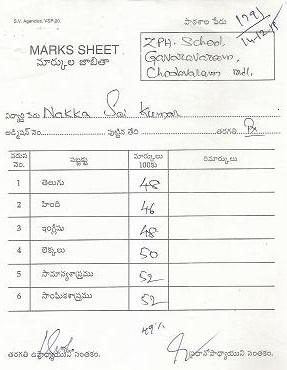 S.V. Agencies, VSP-20.
పాఠశాల పేరు
1791
14-12-15
MARKS SHEET
మార్కుల జాబితా
ZPH. School,
Gavaravaram,
Chodavaram mdl.
విద్యార్థి పేరు Nakka Sai Kumar
అడ్మిషన్ నెం. పుట్టిన తేది తరగతి IX
వరుస నెం. సబ్జక్టు మార్కులు 100కు రిమార్కులు
1 తెలుగు 48
2 హిందీ 46
3 ఇంగ్లీషు 48
4 లెక్కలు 50
5 సామాన్యశాస్త్రము 52
6 సాంఘికశాస్త్రము 52
49%
తరగతి ఉపాధ్యాయుని సంతకం. ప్రధానోపాధ్యాయుని సంతకం.